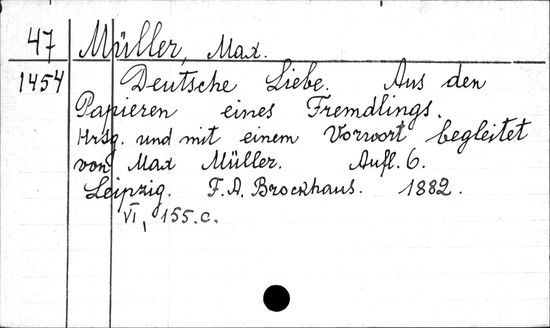 47 Müller, Max.
1454 Deutsche Liebe. Aus den
Papieren eines Fremdlings.
Hrsg. und mit einem Vorwort begleitet
von Max Müller. Aufl. 6.
Leipzig. F. A. Brockhaus. 1882.
VI, 155.c.